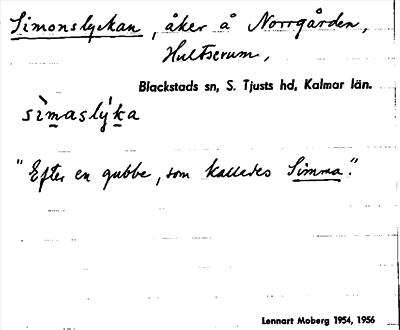 Simonslyckan, åker å Norrgården,
Hultserum,
Blackstads sn, S. Tjusts hd, Kalmar län.
sìmaslýka
"Efter en gubbe, som kallades Simma".
Lennart Moberg 1954, 1956